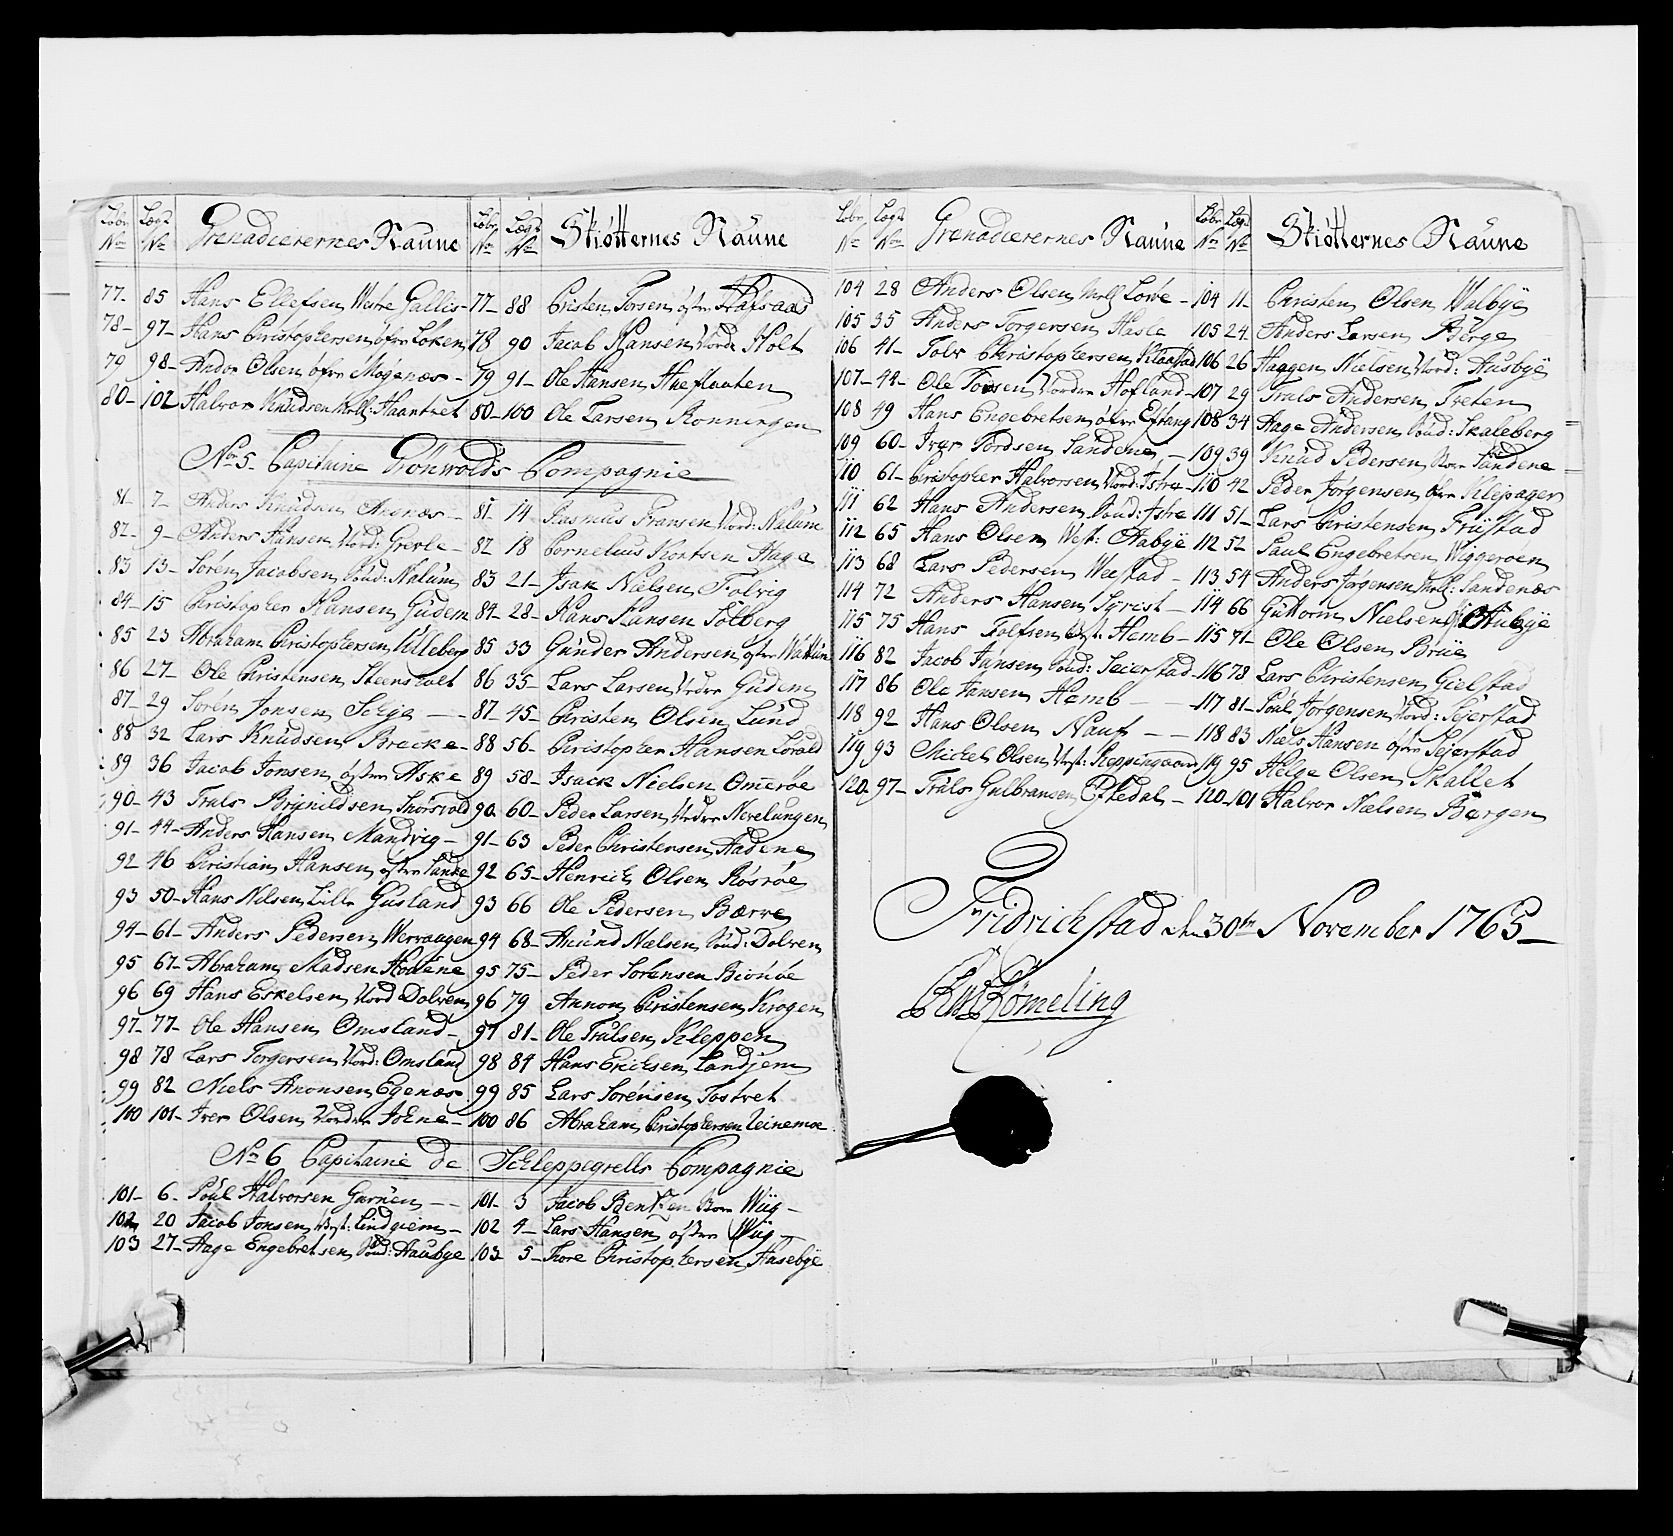 Løbe No Lægs No Grenadeerernes Naune Løbe No Lægs No Skiötternes Naune
77- 85 Hans Ellefsen Westre Gallis- 77- 88 Cristen Torsen östre
78- 97- Hans Christophersen öfre Löken 78 90 Jacob Hansen Nordre Holt
79 98- Andor Olsen öfre Mögenæs- 79 91- Ole Hansen
80- 102 Halvor Knudsen 80-100 Ole Larsen Ronningen
No 5. Capitaine Grönwolds Compagnie
81- 7- Anders Knudsen Aronæs- 81- 14- Rasmus Fransen Nord: Nalum
82- 9- Anders Hansen Nord: Grevle- 82 18 Cornelius Kiortsen Hage
83 13- Sören Jacobsen Söud: Nalum 83 21- Isak Nielsen Folvig
84- 15 Christopher Hansen Gudem 84- 28- Hans Hansen Solberg
85 23 Abraham Christophersen Ulleberg 85 33 Gunder Andersen östre
86 27- Ole Christensen Steensholt 86 35- Lars Larsen Nedre Gudem
87- 29 Sören Jonsen Schye -- 87- 45- Christen Olsen Lund
88 32 Lars Knudsen Bracke- 88 56- Christopher Hansen
89 36 Jacob Jonsen östre Aske 89 58- Isack Nielsen Omeröe
90- 43 Trals Brynildsen 90- 60- Peder Larsen Nedre Nevelungen
91- 44- Anders Hansen Mandvig- 91- 63 Peder Christensen Aadene
92 46 Christian Hansen östre 92 65- Henrich Olsen Rösröe
93 50- Hans Nilsen Lille Gusland 93 66 Ole Pedersen Bærre
94- 61- Anders Pedersen Wervaagen 94 68- Amund Nielsen Söud: Dolven
95 67- Abraham Madsen Hodene 95 75- Peder Sörensen Biönöe
96 69 Hans Eskelsen Nord Dolven 96 79 Annon Christensen Krogen
97- 77- Ole Hansen Omsland- 97 81- Ole Trulsen Kleppen
98 78 Lars Torgersen Nord: Omsland 98 84 Hans Erichsen Landjem
99 82 Niels Anonsen Egenæs- 99 85 Lars Sörensen Tostvet
100 101- Iver Olsen Nordre 100 86 Abraham Christophersen
No 6 Capitaine de Schleppegrells Compagnie
101- 6- Poul Halvorsen -- 101- 3 Jacob Wiig-
102 20 Jacob Jonsen Vest: Lindhiem- 102 4- Lars Hansen östre Wiig-
103 27- Aage Engebretsen Söud: Haubye 103 5- Tore Christophersen Hasebye
Løbe No Lægs No Grenadeerernes Naune Løbe No Lægs No Skiötternes Naune
104 28 Anders Olsen Lowe- 104 11- Christen Olsen Walbye
105 35 Anders Torgersen Hasle 105 24 Anders Larsen Berge
106 41- Tolv Christophersen Klaastad 106 26 Haagen Nielsen Nord: Ausbye
107- 44- Ole Torsen Nordre Hofland- 107 29 Trals Andersen Treten
108 49 Hans Engebretsen öfre Eftang 108 34 Aage Andersen Söud: Skaleberg
109 60- Iver Tordsen Sandene - 109 39 Knud Pedersen Store Sundene
110 61- Christopher Halvorsen Nord: Istre- 110 42 Peder Jörgensen öfre Klepager
111 62 Hans Andersen Söud: Istre 111 51- Lars Christensen Frustad
112 65 Hans Olsen Vest: Aabye 112 52 Paul Engebretsen Wiggeroen
113 68 Lars Pedersen Wæstad - 113 54 Anders Jörgensen Sandenæs
114 72 Anders Hansen Syrist- 114 66 Guttorm Nielsen Aubye
115 75 Hans Rolfsen Hemb- 115 71- Ole Olsen Brue
116 82 Jacob Jansen Söud: Seierstad- 116 78 Lars Christensen Gielstad
117 86 Ole Jansen Hemb -- 117 81- Poul Jörgensen Nord: Sejerstad
118 92 Hans Olsen Nauf -- 118 83 Niels Hansen östre Sejerstad
119 93 Mickel Olsen Vest: 119 95 Helge Olsen Skallet
120 97- Truls Gulbransen Eftedal- 120 101 Halvor Nielsen Bergen
Fridrichstad den 30te November 1765-
Römeling